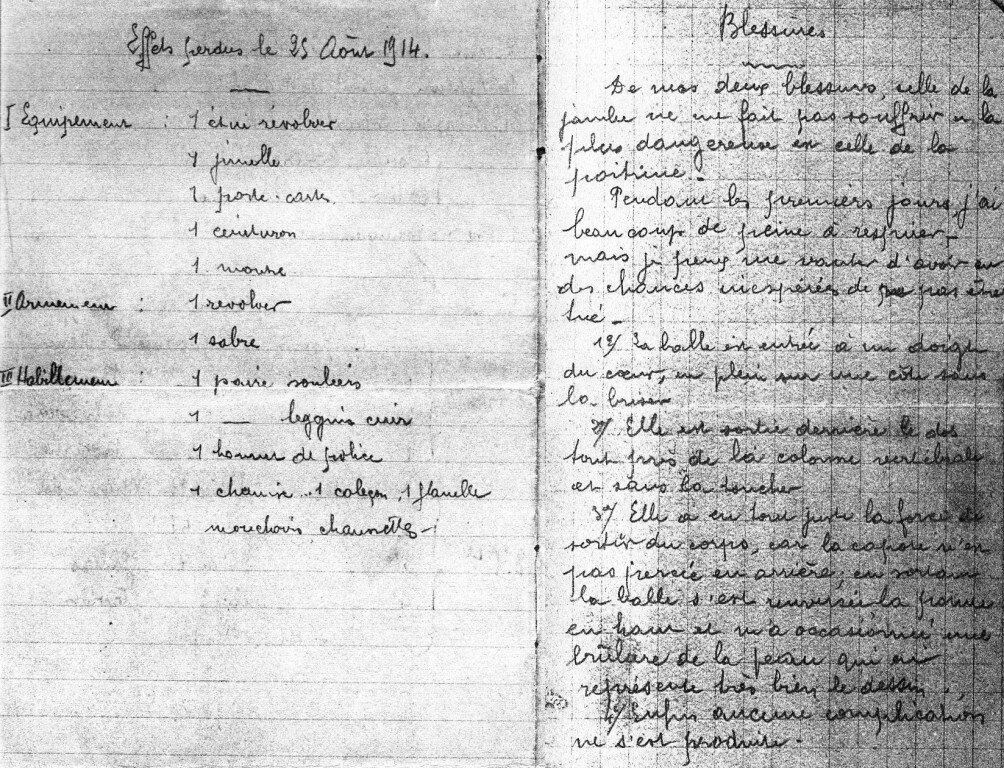 Effets perdus le 25 Août 1914.
I Equipement : 1 étui révolver
1 jumelle
1 porte-cartes
1 ceinturon
1 montre
II Armement : 1 revolver
1 sabre
III Habillement : 1 paire souliers
1 — leggins cuir
1 bonnet de police
1 chemise, 1 caleçon, 1 flanelle
mouchoirs, chaussettes -
Blessures
De mes deux blessures, celle de la
jambe ne me fait pas souffrir et la
plus dangereuse est celle de la
poitrine -
Pendant les premiers jours, j'ai
beaucoup de peine à respirer,
mais je peux me vanter d'avoir eu
des chances inespérées de pas être
tué -
1º/ La balle est entrée à un doigt
du cœur, en plein sur une côte sans
la briser
2º/ Elle est sortie derrière le dos
tout près de la colonne vertébrale
et sans la toucher
3º/ Elle a eu tout juste la force de
sortir du corps, car la capote n'est
pas percée en arrière, en sortant
la balle s'est renversée la pointe
en haut et m'a occasionné une
brûlure de la peau qui en
représente très bien le dessin.
4º/ Enfin aucune complication
ne s'est produite -